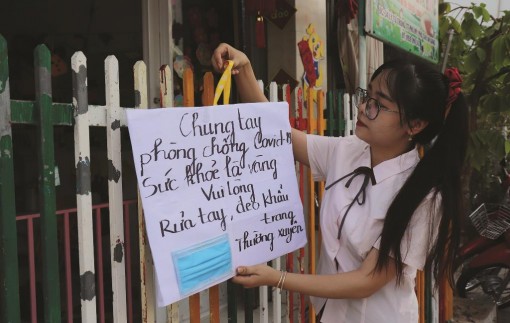 Chung tay
phòng chống Covid 19
Sức khỏe là vàng
Vui lòng
Rửa tay, đeo khẩu
trang
Thường xuyên